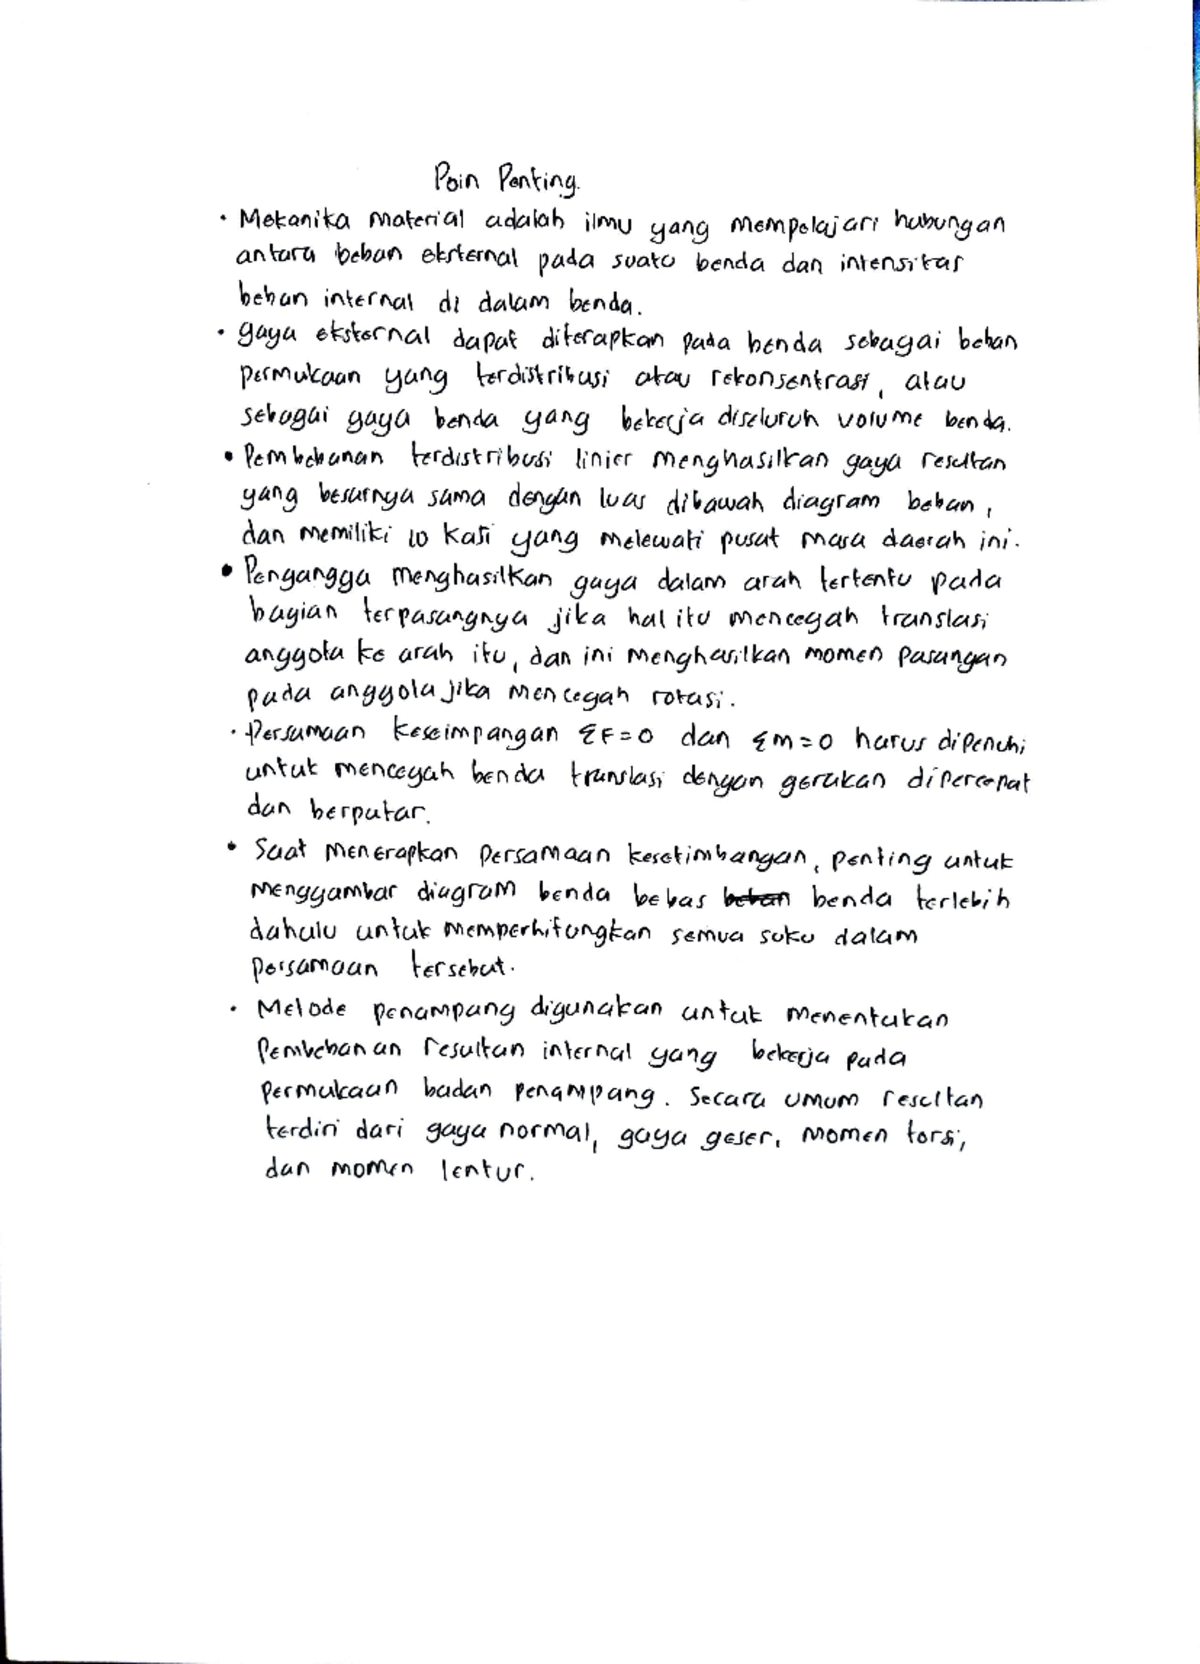 Poin Penting.
• Mekanika material adalah ilmu yang mempelajari hubungan
antara beban eksternal pada suatu benda dan intensitas
beban internal di dalam benda.
• gaya eksternal dapat diterapkan pada benda sebagai beban
permukaan yang terdistribusi atau rekonsentrasi, atau
sebagai gaya benda yang bekerja diseluruh volume benda.
• Pembebanan terdistribusi linier menghasilkan gaya resultan
yang besarnya sama dengan luas dibawah diagram beban,
dan memiliki lo kasi yang melewati pusat masa daerah ini.
• Pengangga menghasilkan gaya dalam arah tertentu pada
bagian terpasangnya jika hal itu mencegah translasi
anggota ke arah itu, dan ini menghasilkan momen pasangan
pada anggota jika mencegah rotasi.
• Persamaan keseimpangan ΣF=0 dan ΣM=0 harus dipenuhi
untuk mencegah benda translasi dengan gerakan dipercepat
dan berputar.
• Saat menerapkan persamaan kesetimbangan, penting untuk
menggambar diagram benda bebas beban benda terlebih
dahulu untuk memperhitungkan semua suku dalam
persamaan tersebut.
• Metode penampang digunakan untuk menentukan
Pembebanan resultan internal yang bekerja pada
permukaan badan penampang. Secara umum resultan
terdiri dari gaya normal, gaya geser, momen torsi,
dan momen lentur.